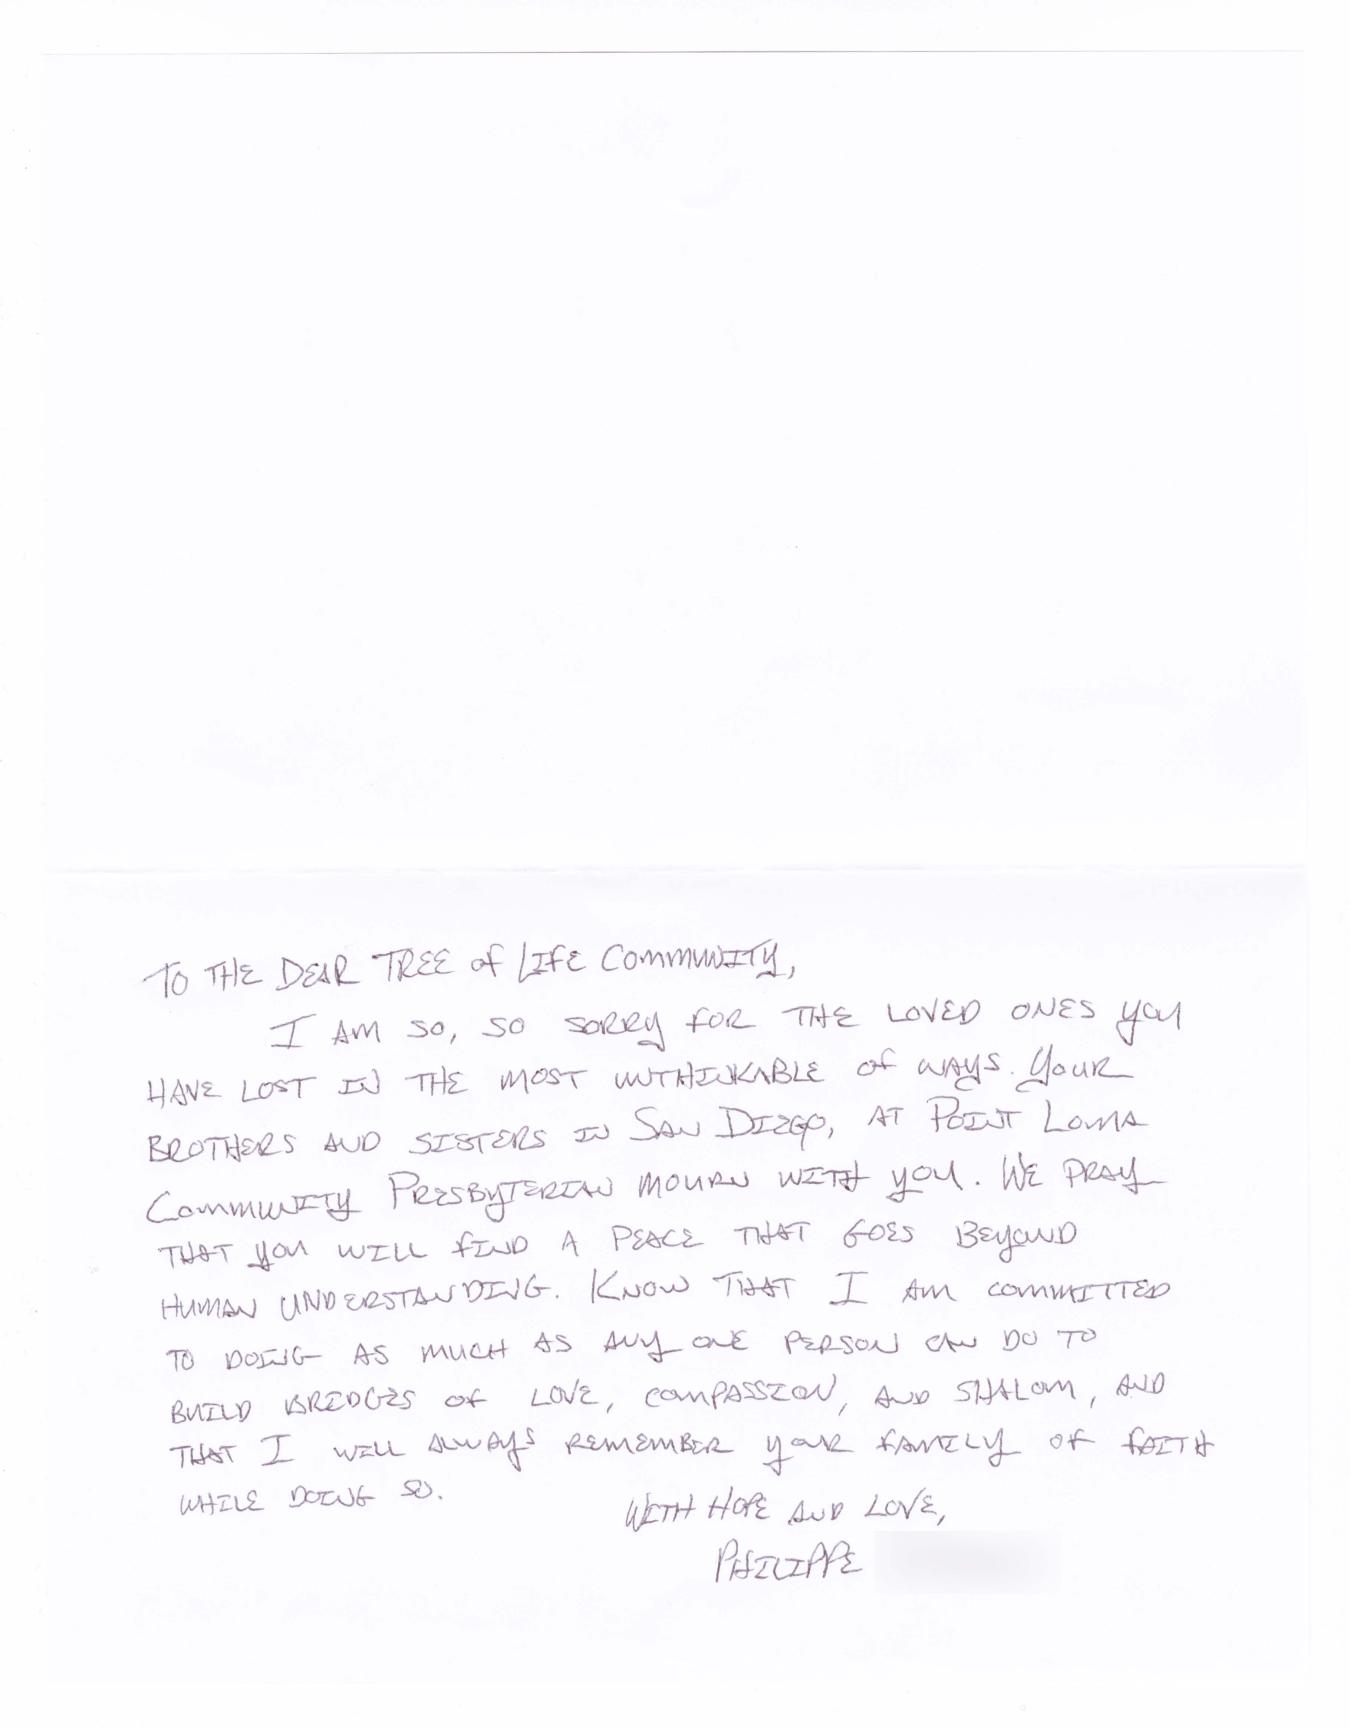 To THE DEAR TREE of LIFE COMMUNITY,
I AM SO, SO SORRY FOR THE LOVED ONES you
HAVE LOST IN THE MOST UNTHINKABLE of WAYS. YOUR
BROTHERS AND SISTERS IN SAN DIEGO, AT POINT LOMA
COMMUNITY PRESBYTERIAN MOURN WITH you. WE PRAY
THAT you WILL FIND A PEACE THAT GOES BEYOND
HUMAN UNDERSTANDING. KNOW THAT I AM COMMITTED
TO DOING AS MUCH AS ANY ONE PERSON CAN DO TO
BUILD BRIDGES OF LOVE, COMPASSION, AND SHALOM, AND
THAT I WILL ALWAYS REMEMBER YOUR FAMILY OF FAITH
WHILE DOING SO.
WITH HOPE AND LOVE,
PHILIPPE